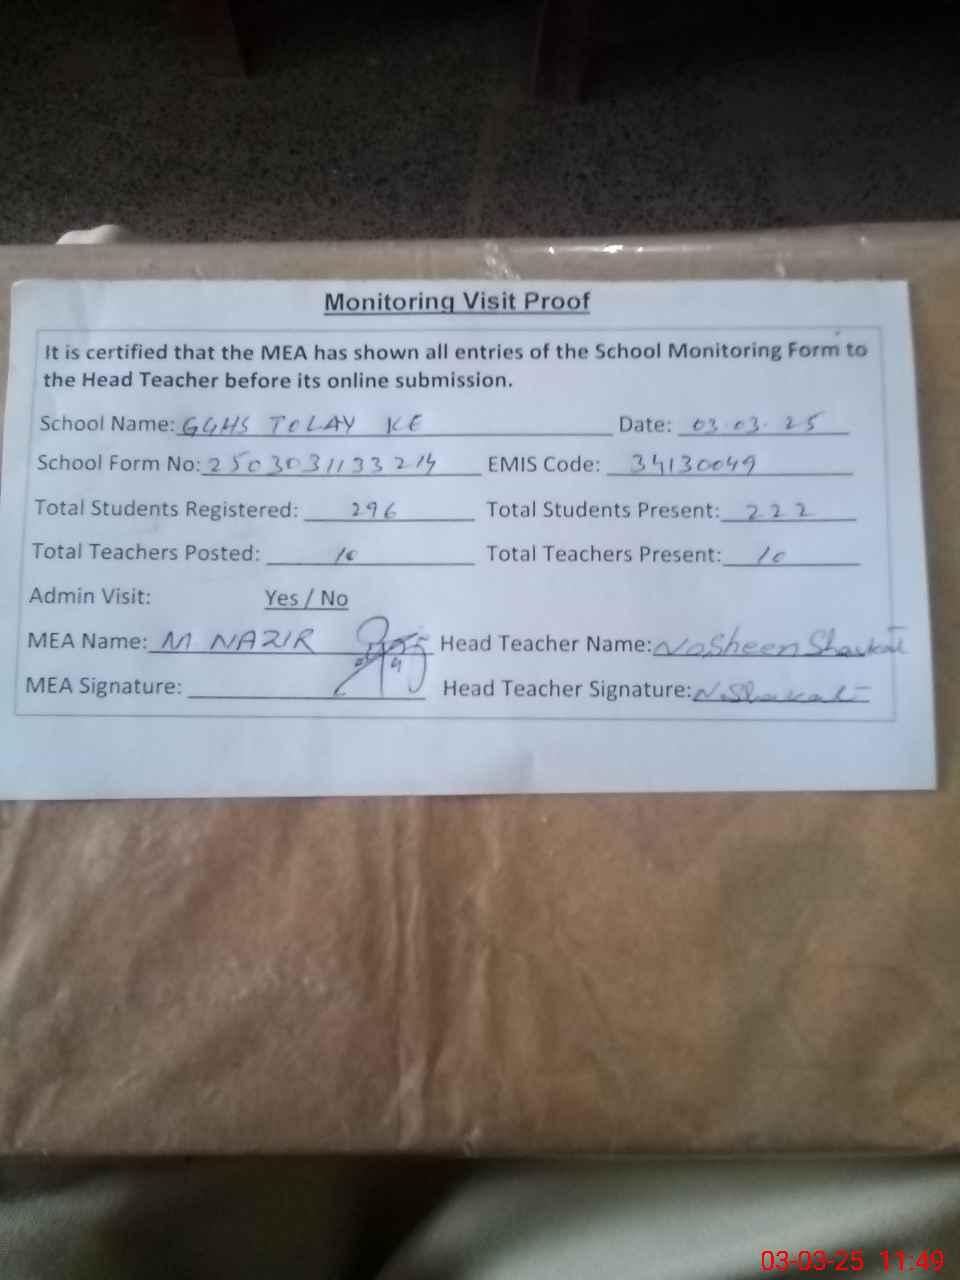 Monitoring Visit Proof
It is certified that the MEA has shown all entries of the School Monitoring Form to
the Head Teacher before its online submission.
School Name: GGHS TOLAY KE Date: 03.03.25
School Form No: 2503031133214 EMIS Code: 34130049
Total Students Registered: 296 Total Students Present: 222
Total Teachers Posted: 10 Total Teachers Present: 10
Admin Visit: Yes / No
MEA Name: M NAZIR Head Teacher Name: Nosheen Shaukat
MEA Signature: Head Teacher Signature: N.Shaukat
03-03-25 11:49